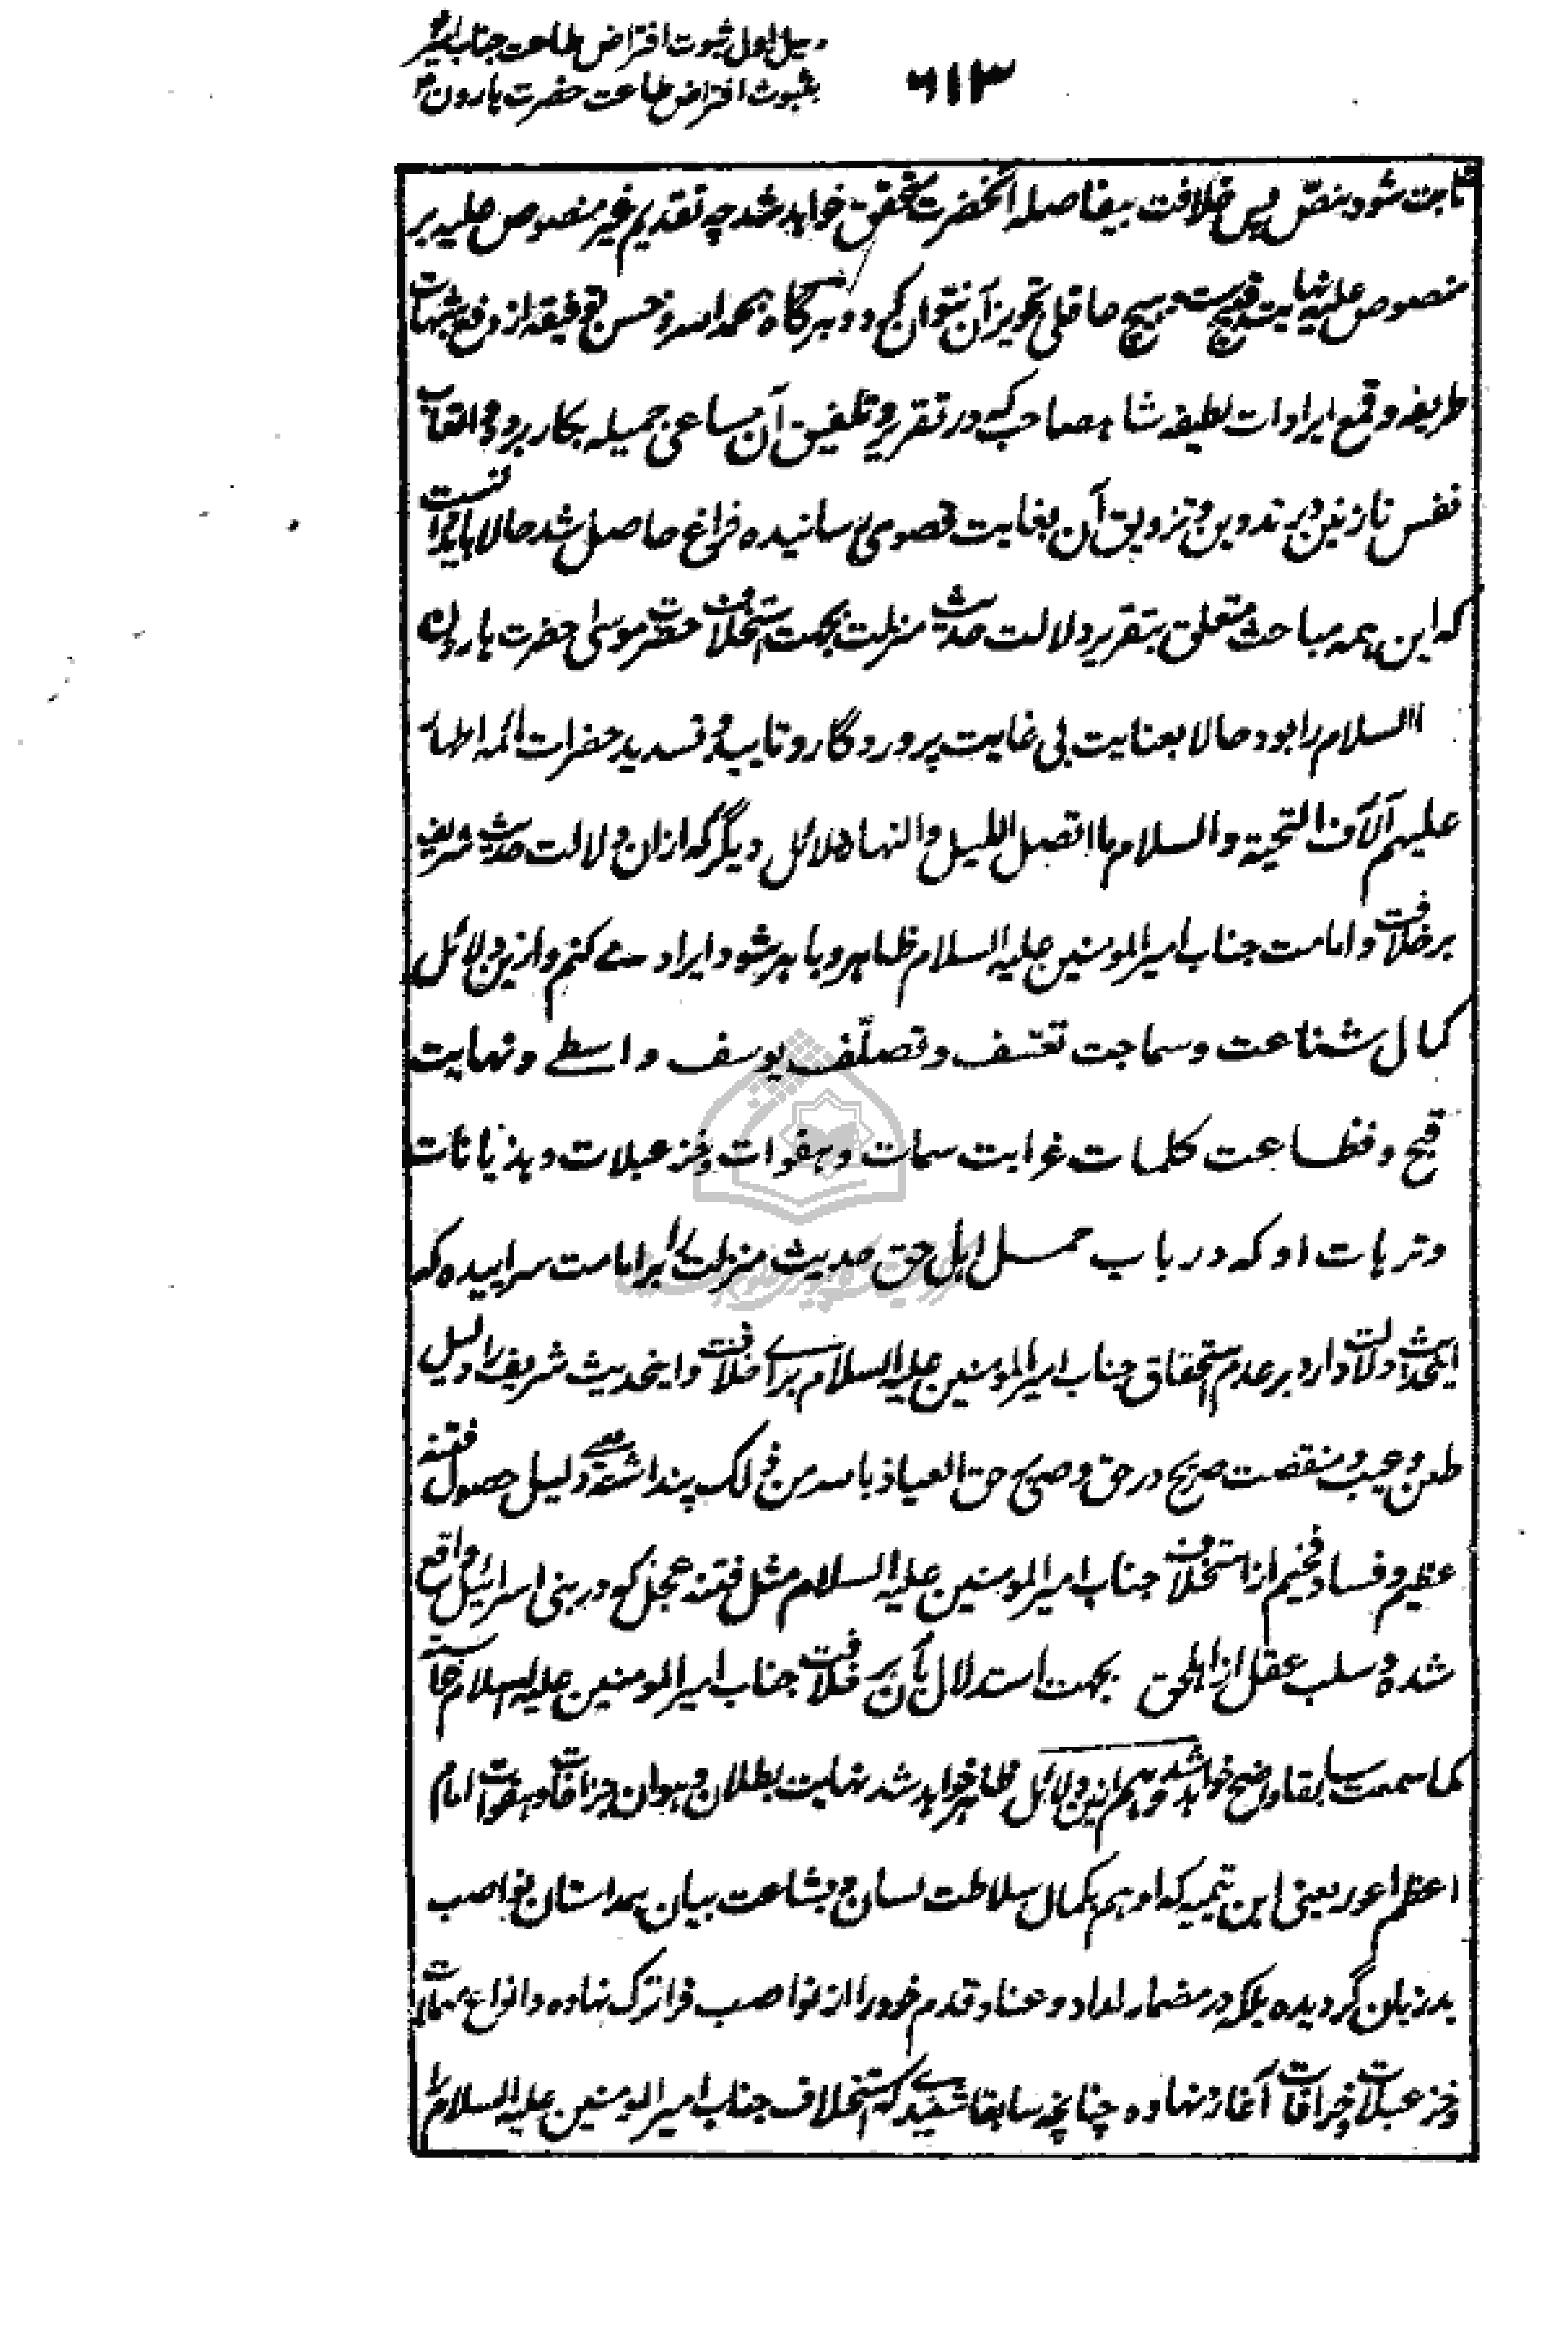 دلیل اول ثبوت افتراض طاعت جناب امیرؑ
۶۱۳
بثبوت افتراض طاعت حضرت هارونؑ
ثابت شود بنصّ پس خلافت بیفاصله آنحضرت متحقق خواهد شد چه تقدیم غیر منصوص علیه بر
منصوص علیه نهایت قبیح ست هیچ عاقلی تجویز آن نتوان کرد و هرگاه بحمد الله و حسن توفیقه از دفع شبهات
طریفه و قمع ایرادات لطیفه شاهصاحب که در تقریر و تلفیق آن مساعی جمیله بکار برده و اتعاب
نفس نازنین در تدوین و تزویق آن بغایت قصوی رسانیده فراغ حاصل شد حالا باید دانست
که این همه مباحث متعلق بتقریر دلالت حدیث منزلت بجهت استخلاف حضرت موسی حضرت هارون
السلام را بود حالا بعنایت بی غایت پروردگار و تایید و تسدید حضرات ائمه اطهار
علیهم آلاف التحیة و السلام ما اتصل اللیل و النهار دلائل دیگر که ازان دلالت حدیث شریف
بر خلافت و امامت جناب امیر المومنین علیه السلام ظاهر و باهر شود ایراد مے کنم و ازین دلائل
کمال شناعت و سماجت تعسّف و تصلّف یوسف واسطے و نهایت
قبح و فظاعت کلمات غرابت سمات و هفوات و خزعبلات و هذیانات
و ترهات او که در باب حمل اهل حق حدیث منزلت را بر امامت سراییده که
اینحدیث دلالت دارد بر عدم استحقاق جناب امیر المومنین علیه السلام براے خلافت و اینحدیث شریف را دلیل
طعن و عیب و منقصت صریح در حق وصی بر حق العیاذ بالله من ذلک پنداشته دلیل حصول فتنه
عظیم و فساد فخیم از استخلاف جناب امیر المومنین علیه السلام مثل فتنه عجل که در بنی اسرائیل واقع
شده و سلب عقل از اهلحق بجهت استدلال بآن بر خلافت جناب امیر المومنین علیه السلام
کما سمعت سابقا واضح خواهد شد و هم ازین دلائل ظاهر خواهد شد نهایت بطلان و هوان جزافات و هفوات امام
اعظم اعور یعنی ابن تیمیه که او هم بکمال سلاطت لسان و بشاعت بیان همداستان نواصب
بدزبان گردیده بلکه در مضمار لداد و عناد قدم خود را از نواصب فراترک نهاده و انواع
و خزعبلات و خرافات آغاز نهاده چنانچه سابقا شنیدے که استخلاف جناب امیر المومنین علیه السلام را